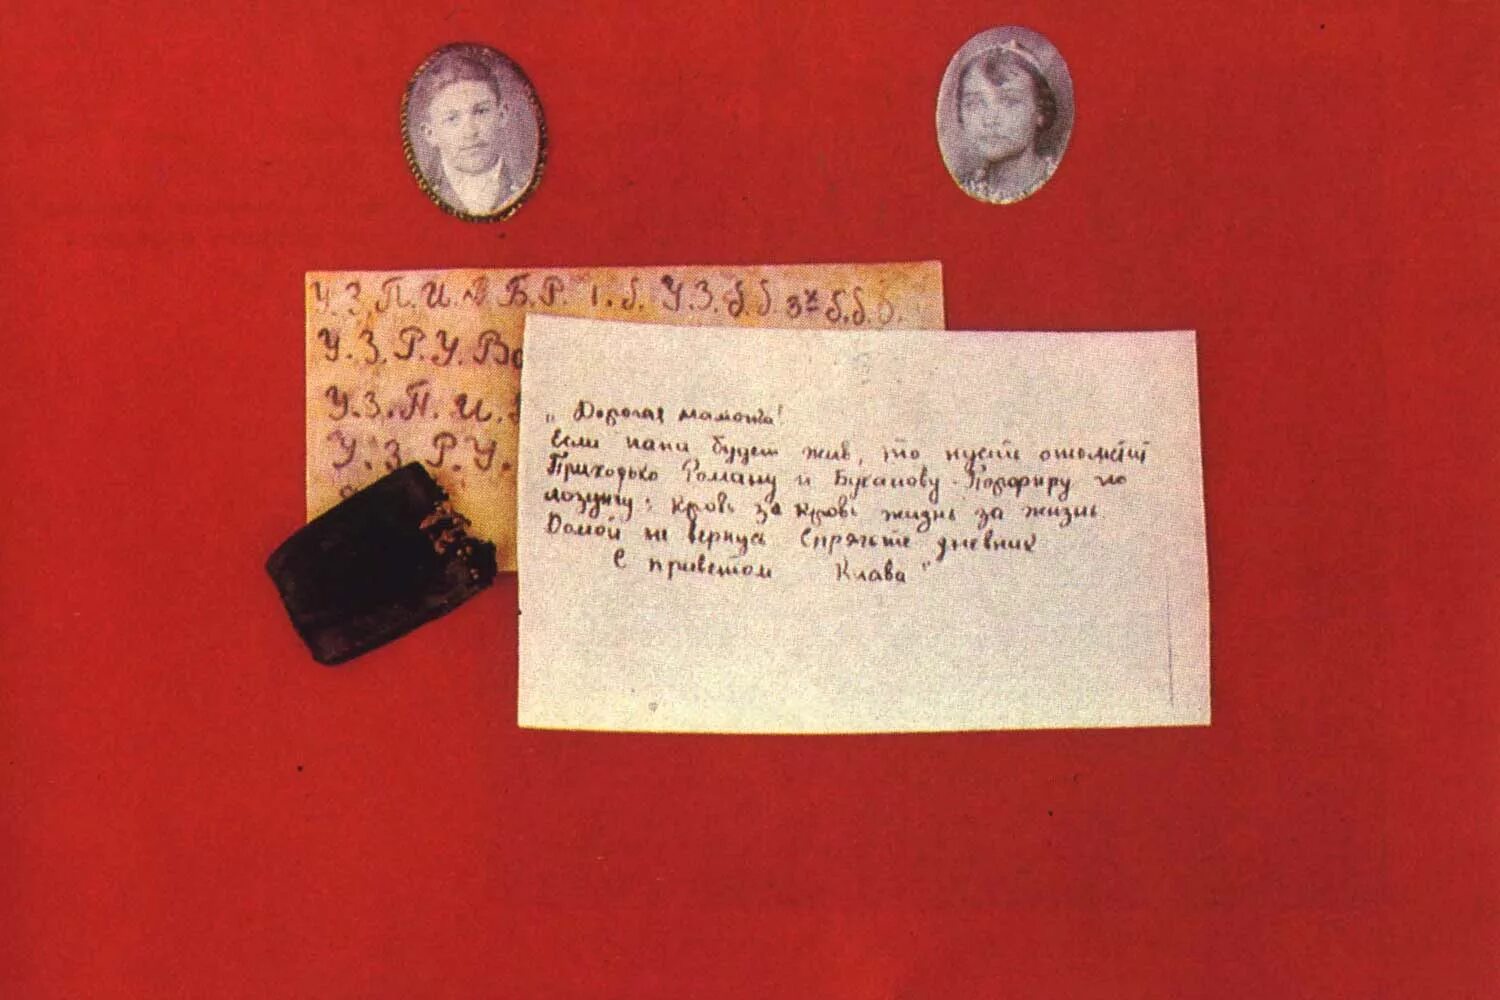 У.З.П.И. Б.Р. 1.б. У.З.б.б. 3х б.б.б.
У.З.Р.У.Во
У.З.П.И.
У.З.Р.У.
„Дорогая мамочка!
Если папа будет жив, то пусть отомстит
Приходько Роману и Буханову Порфиру по
лозунгу: кровь за кровь жизнь за жизнь
Домой не вернусь Спрячьте дневник
С приветом Клава"